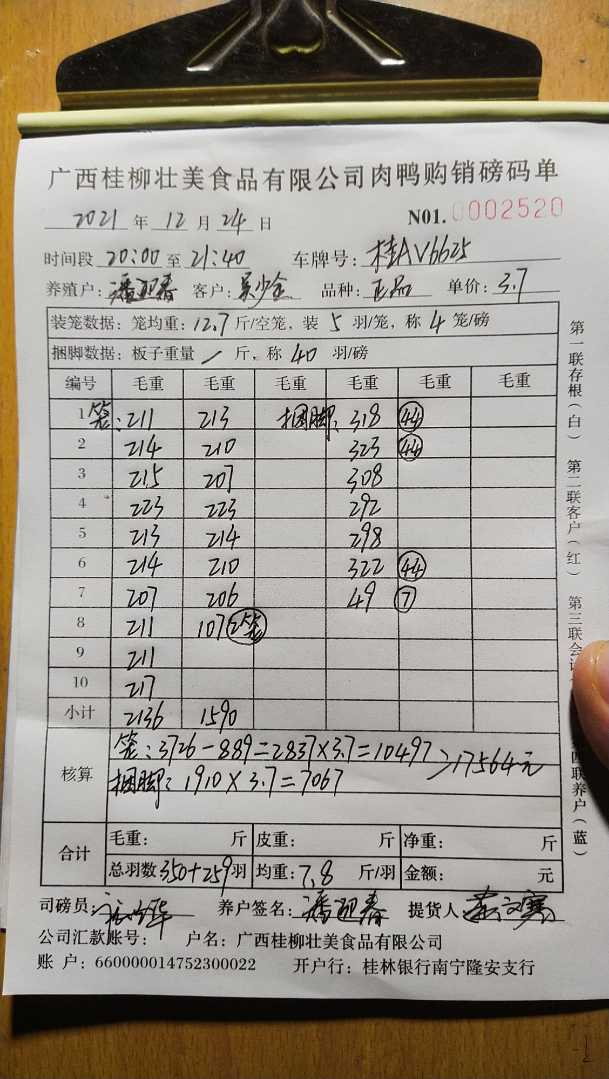 广西桂柳壮美食品有限公司肉鸭购销磅码单
2021 年 12 月 24 日 N01. 0002520
时间段 20:00 至 21:40 车牌号: 桂AV6625
养殖户: 潘迎春 客户: 吴少全 品种: 正品 单价: 3.7
装笼数据: 笼均重: 12.7 斤/空笼, 装 5 羽/笼, 称 4 笼/磅
捆脚数据: 板子重量 / 斤, 称 40 羽/磅
编号 毛重 毛重 毛重 毛重 毛重 毛重
1 笼: 211 213 捆脚: 318 44
2 214 210 323 44
3 215 207 308
4 223 223 292
5 213 214 298
6 214 210 322 44
7 207 206 49 7
8 211 107 2笼
9 211
10 217
小计 2136 1590
核算
笼: 3726-889=2837×3.7=10497
捆脚: 1910×3.7=7067
>17564元
合计
毛重: 斤 皮重: 斤 净重: 斤
总羽数 350+259 羽 均重: 7.8 斤/羽 金额: 元
司磅员: 养户签名: 潘迎春 提货人:
公司汇款账号: 户名: 广西桂柳壮美食品有限公司
账 户: 660000014752300022 开户行: 桂林银行南宁隆安支行
第一联存根(白) 第二联客户(红) 第三联会 四联养户(蓝)